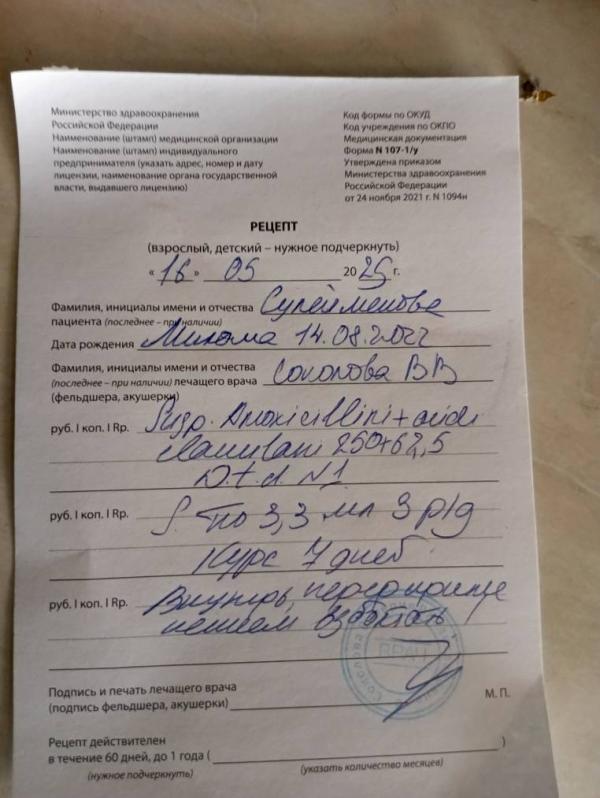 Министерство здравоохранения
Российской Федерации
Наименование (штамп) медицинской организации
Наименование (штамп) индивидуального
предпринимателя (указать адрес, номер и дату
лицензии, наименование органа государственной
власти, выдавшего лицензию)
Код формы по ОКУД
Код учреждения по ОКПО
Медицинская документация
Форма N 107-1/у
Утверждена приказом
Министерства здравоохранения
Российской Федерации
от 24 ноября 2021 г. N 1094н
РЕЦЕПТ
(взрослый, детский – нужное подчеркнуть)
« 16 » 05 20 25 г.
Фамилия, инициалы имени и отчества Сулейменова
пациента (последнее – при наличии)
Дата рождения 14.08.2022
Фамилия, инициалы имени и отчества
(последнее – при наличии) лечащего врача Соколова ВВ
(фельдшера, акушерки)
руб. I коп. I Rp. Susp. Amoxicillini + acidi
clavulani 250+62,5
D.t.d. N1
руб. I коп. I Rp. S. по 3,3 мл 3 р/д
Курс 7 дней
руб. I коп. I Rp. Внутрь, перед
взболтать
ВРАЧ
Подпись и печать лечащего врача
(подпись фельдшера, акушерки)
М. П.
Рецепт действителен
в течение 60 дней, до 1 года ( )
(нужное подчеркнуть) (указать количество месяцев)